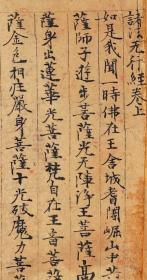 諸法无行經卷上
如是我聞一時佛在王舍城耆闍崛山中
薩師子遊步菩薩光无障淨王菩薩高
薩身出蓮華光菩薩梵自在王音菩薩
薩金色相莊嚴身菩薩十光破魔力菩薩